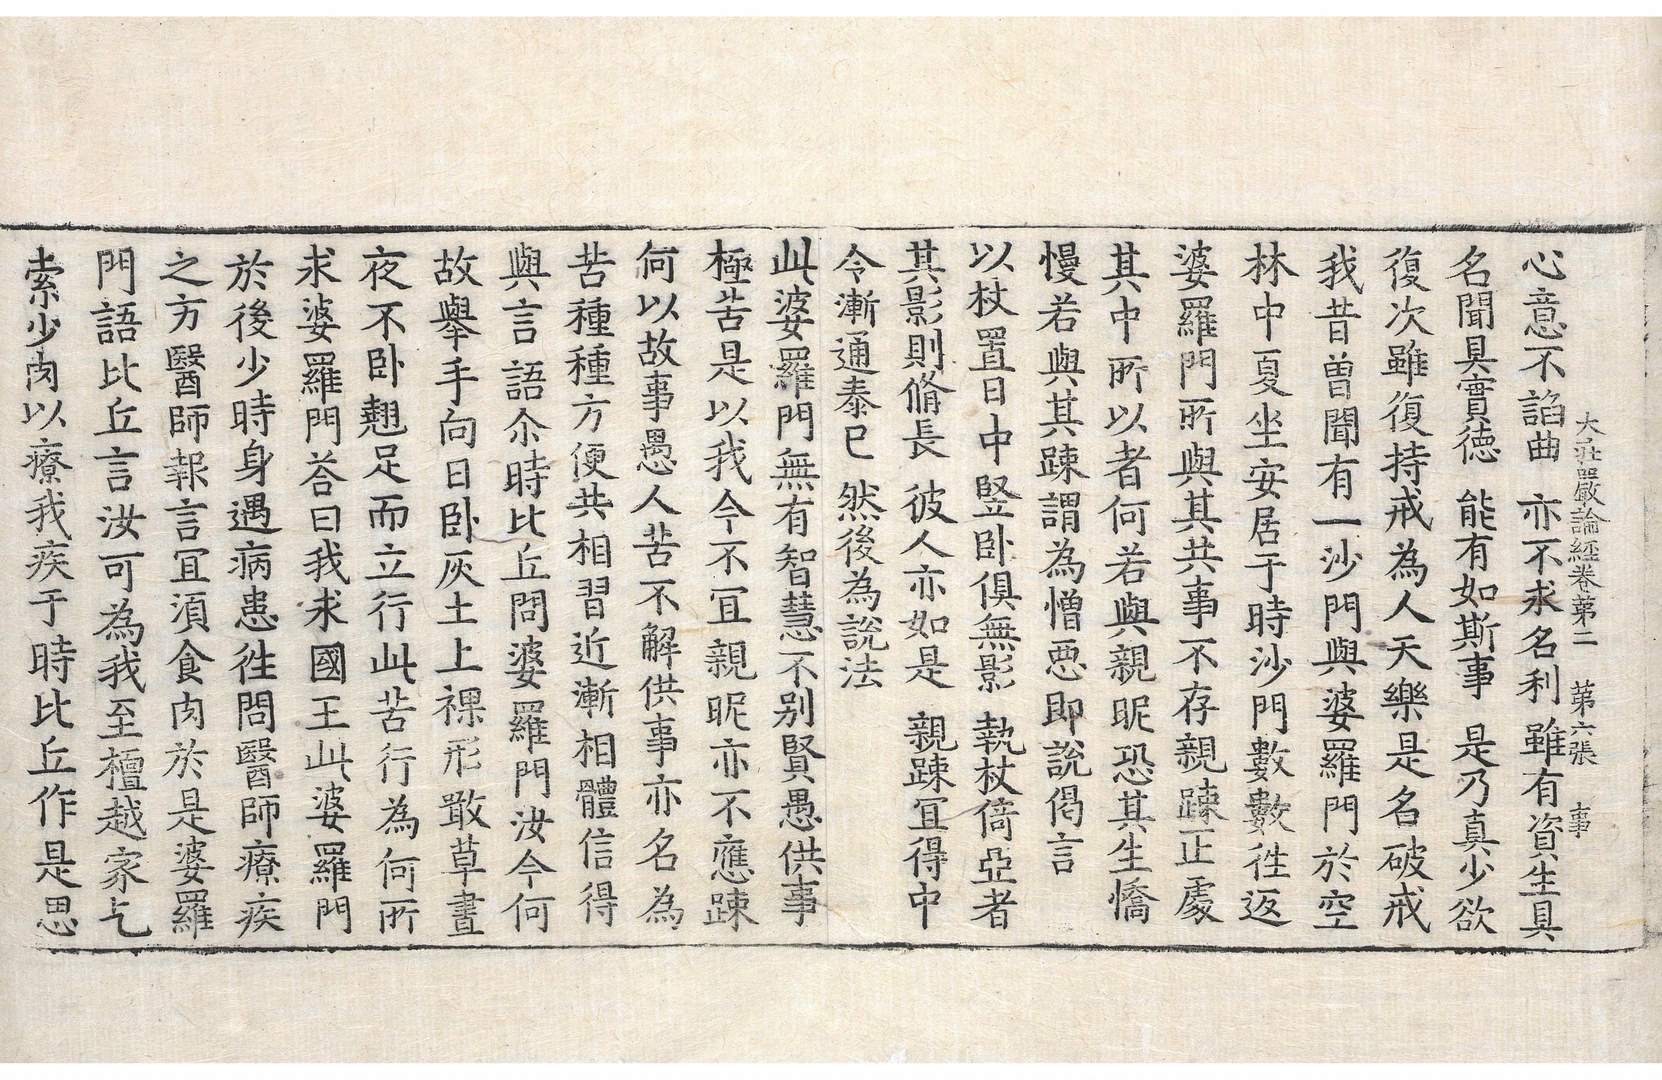 大莊嚴論經卷第二　第六張　事
心意不諂曲　亦不求名利　雖有資生具
名聞具實德　能有如斯事　是乃真少欲
復次雖復持戒為人天樂是名破戒
我昔曽聞有一沙門與婆羅門於空
林中夏坐安居于時沙門數數徃返
婆羅門所與其共事不存親踈正處
其中所以者何若與親昵恐其生憍
慢若與其踈謂為憎惡即說偈言
以杖置日中　竪卧俱無影　執杖倚亞者
其影則脩長　彼人亦如是　親踈冝得中
令漸通泰已　然後為說法
此婆羅門無有智慧不别賢愚供事
極苦是以我今不冝親昵亦不應踈
何以故事愚人苦不解供事亦名為
苦種種方便共相習近漸相體信得
與言語尒時比丘問婆羅門汝今何
故舉手向日卧灰土上裸形噉草晝
夜不卧翹足而立行此苦行為何所
求婆羅門荅曰我求國王此婆羅門
於後少時身遇病患徃問醫師療疾
之方醫師報言冝湏食肉於是婆羅
門語比丘言汝可為我至檀越家乞
索少肉以療我疾于時比丘作是思